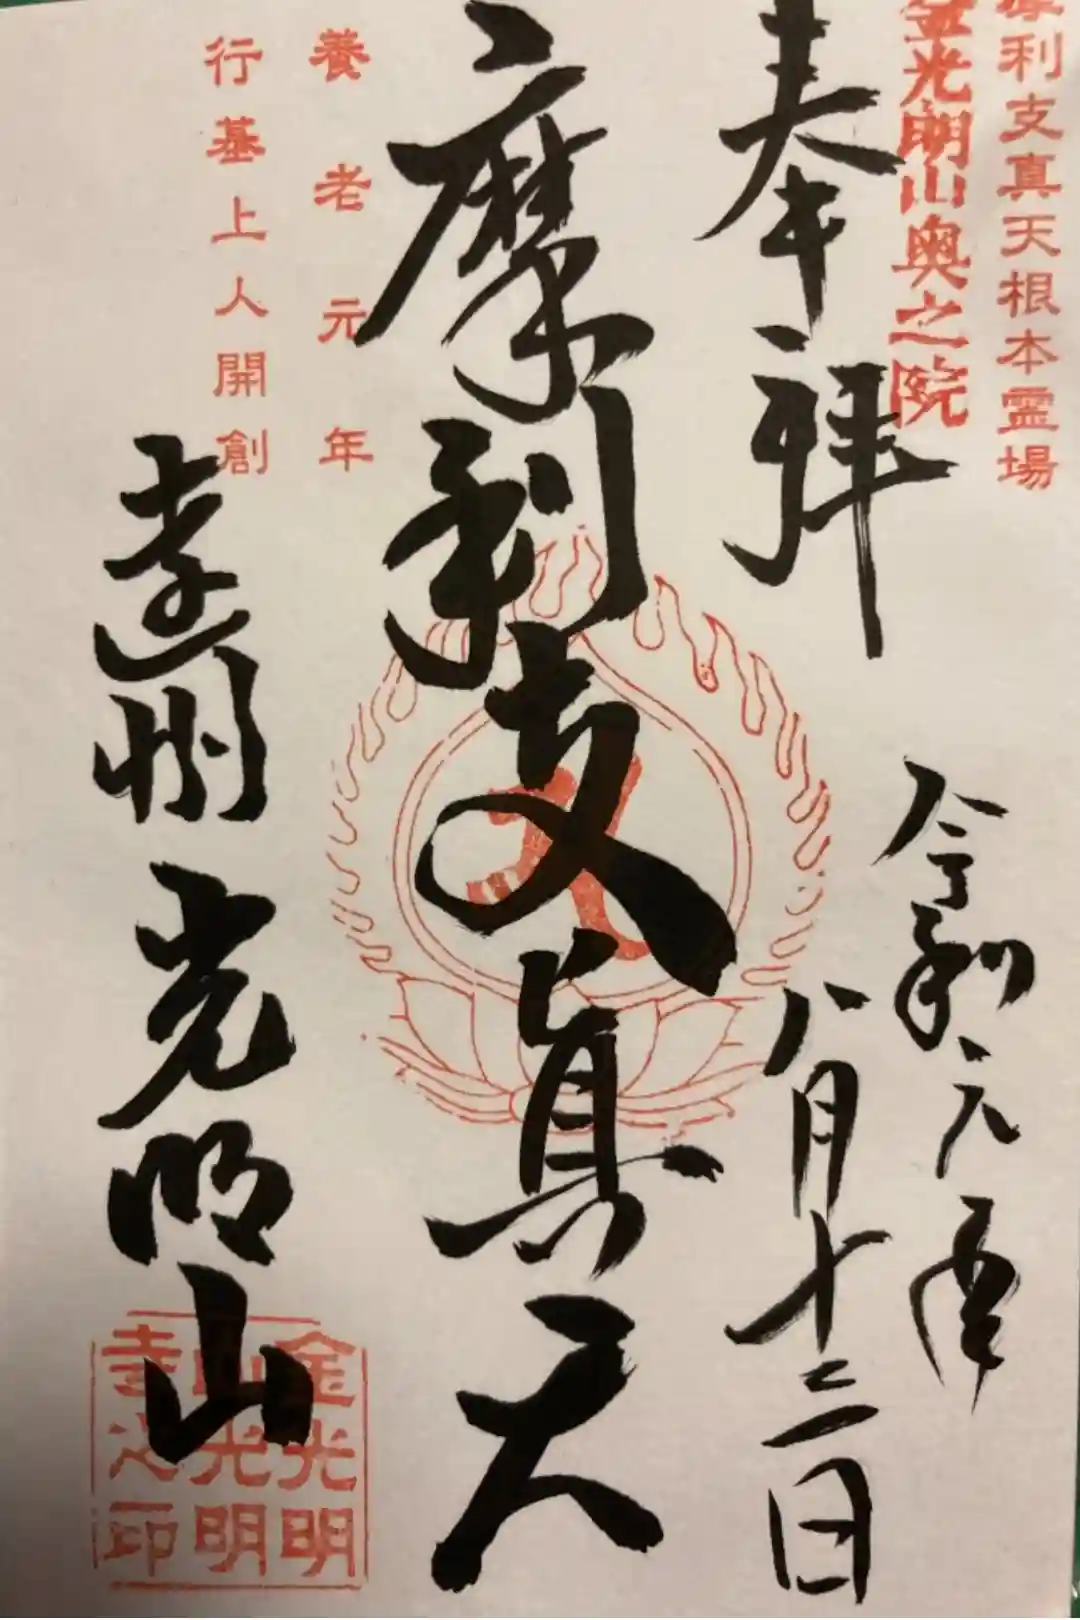 摩利支真天根本霊場
金光明山奥之院
奉拝
令和六年
八月十二日
摩利支真天
養老元年
行基上人開創
遠州 光明山
金光明
山光明
寺之印